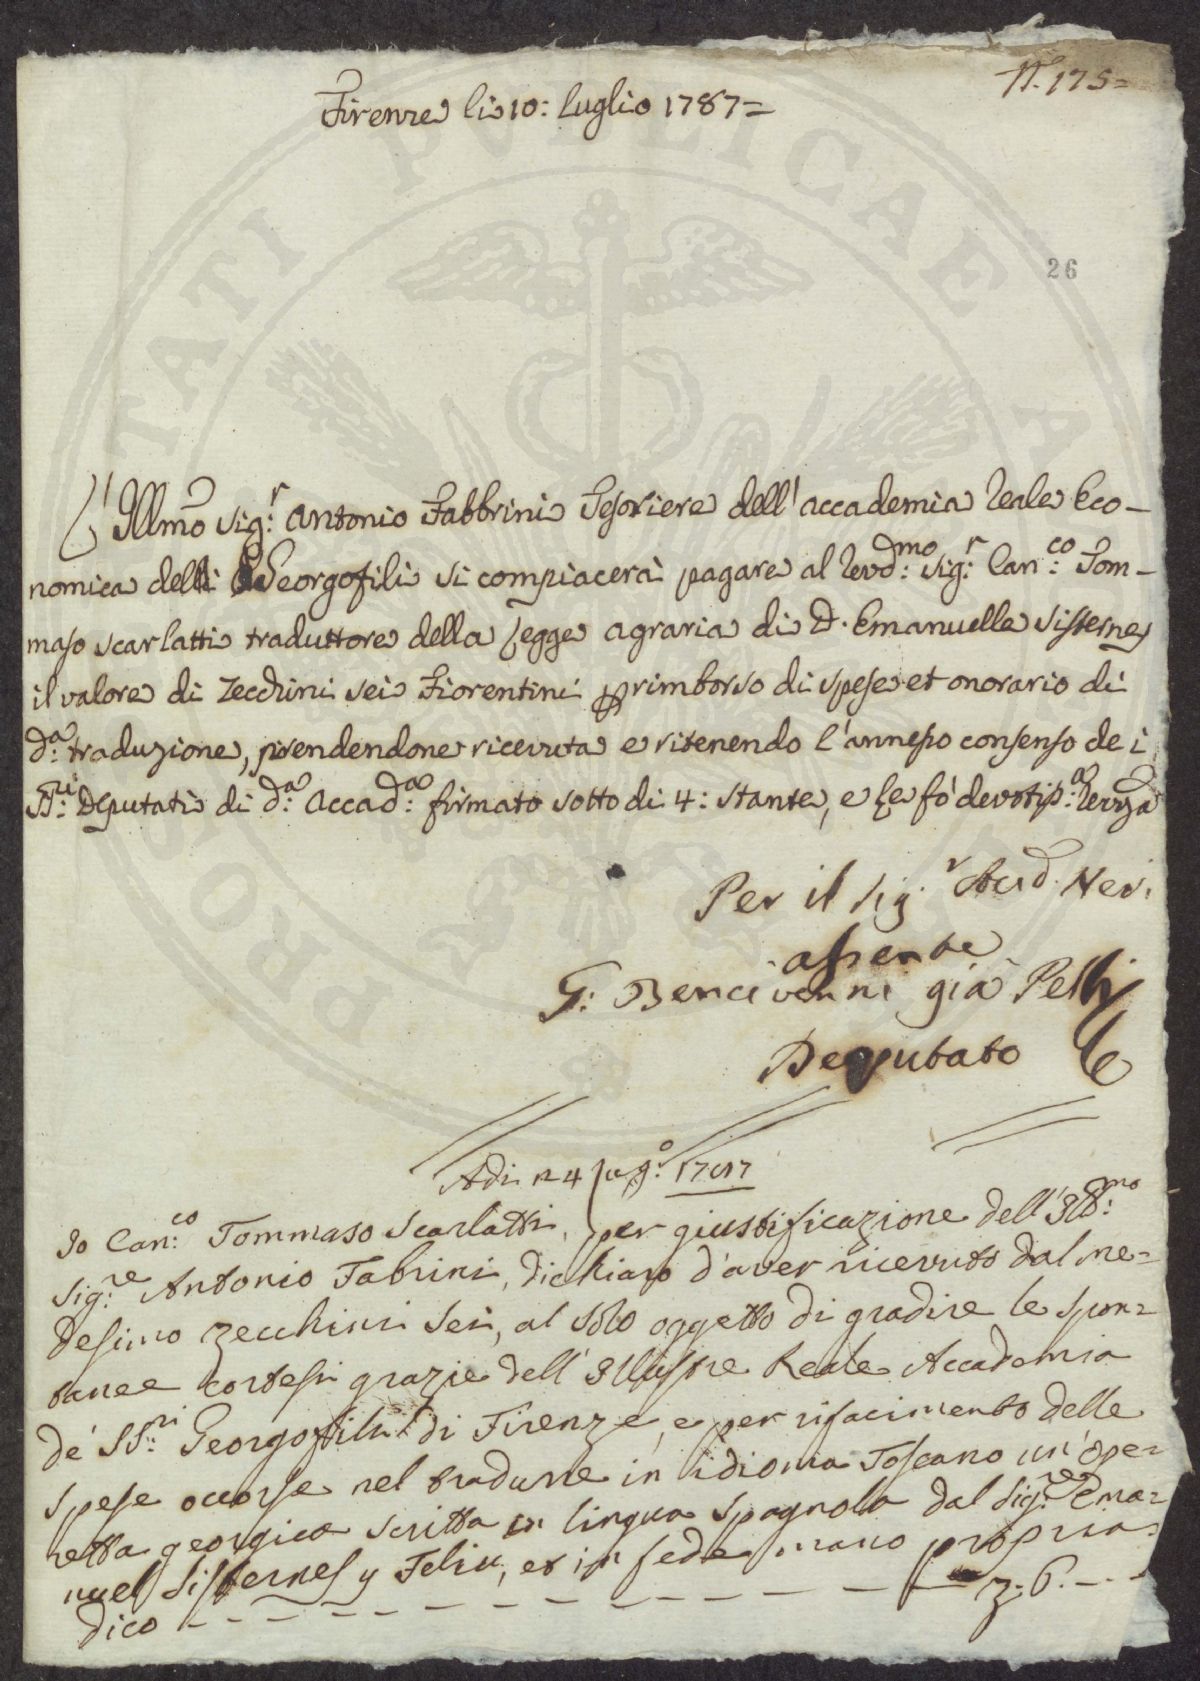 N. 175=
Firenze li 10: Luglio 1787=
26
PROSPERITATI PUBLICAE AUGENDAE
Illmo Sig:r Antonio Fabbrini Tesoriere dell'accademia Reale Eco-
nomica delli Georgofili si compiacerà pagare al Revd:mo Sig:r Can:co Tom-
maso Scarlatti traduttore della Legge agraria di D. Emanuelle Sisternes
il valore di Zecchini sei Fiorentini per rimborso di spese et onorario di
d:a traduzione, prendendone ricevuta e ritenendo l'annesso consenso dei
SS:ri Deputati di d:a Accad:a firmato sotto di 4: stante, e le fò devotiss:a Revza
Per il Sig.r Aud. Neri
assente
G: Bencivenni già Pelli
Deputato
Adi 24 Lug:o 1787
Io Can:co Tommaso Scarlatti, per giustificazione dell'Ill:mo
Sig:re Antonio Fabrini, dichiaro d'aver ricevuto dal me=
desimo Zecchini sei, al solo oggetto di gradire le spon=
tanee cortesi grazie dell'Illustre Reale Accademia
de' SS:ri Georgofili di Firenze, e per rifacimento delle
spese occorse nel tradurre in idioma Toscano un'ope=
retta georgica scritta in lingua Spagnola dal Sig:re Ema=
nuel Sisternes y Feliu, et in fede mano propria=
dico - - - - - - - - - - - - z: 6. - - -